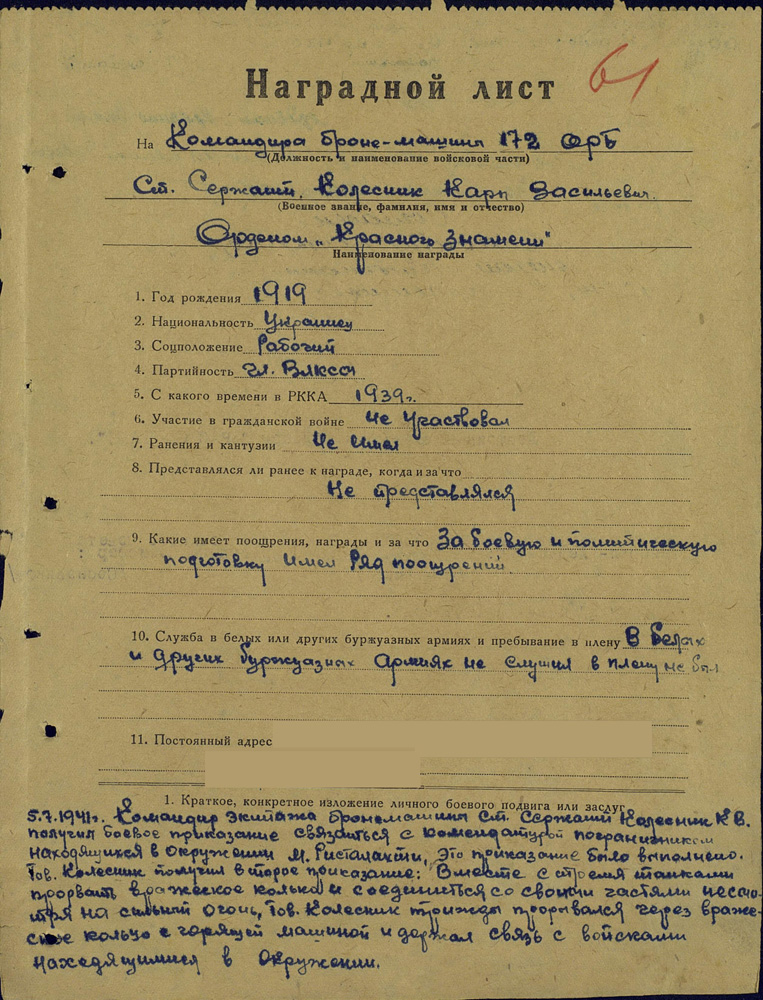 Наградной лист
61
На Командира броне-машины 172 ОРБ
(Должность и наименование войсковой части)
Ст. Сержант, Колесник Карп Васильевич.
(Военное звание, фамилия, имя и отчество)
Орденом „Красного Знамени"
Наименование награды
1. Год рождения 1919
2. Национальность Украинец
3. Соцположение Рабочий
4. Партийность чл. ВЛКСМ
5. С какого времени в РККА 1939г.
6. Участие в гражданской войне Не участвовал
7. Ранения и кантузии Не имел
8. Представлялся ли ранее к награде, когда и за что
Не представлялся
9. Какие имеет поощрения, награды и за что За боевую и политическую
подготовку имел Ряд поощрений
10. Служба в белых или других буржуазных армиях и пребывание в плену В белых
и других буржуазных Армиях не служил в плену не был
11. Постоянный адрес
1. Краткое, конкретное изложение личного боевого подвига или заслуг
5.7.1941г. Командир Экипажа бронемашины Ст. Сержант Колесник К.В.
получил боевое приказание связаться с комендатурой пограничников
находящихся в Окружении М. Ристалахти, Это приказание было выполнено.
Тов. Колесник получил второе приказание: Вместе с тремя танками
прорвать вражеское кольцо и соединиться со своими частями несмо-
тря на сильный огонь, Тов. Колесник трижды прорывался через враже-
ское кольцо с горящей машиной и держал связь с войсками
находящимися в Окружении.